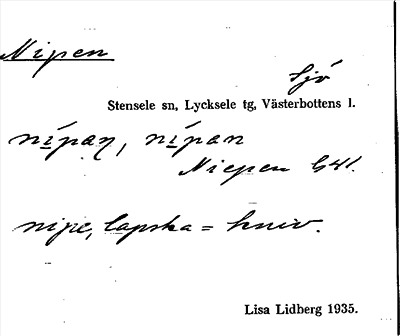 Nipen
Sjö
Stensele sn, Lycksele tg, Västerbottens l.
nípaṇ, nípan
Niepen G41.
nipe, lapska = kniv.
Lisa Lidberg 1935.